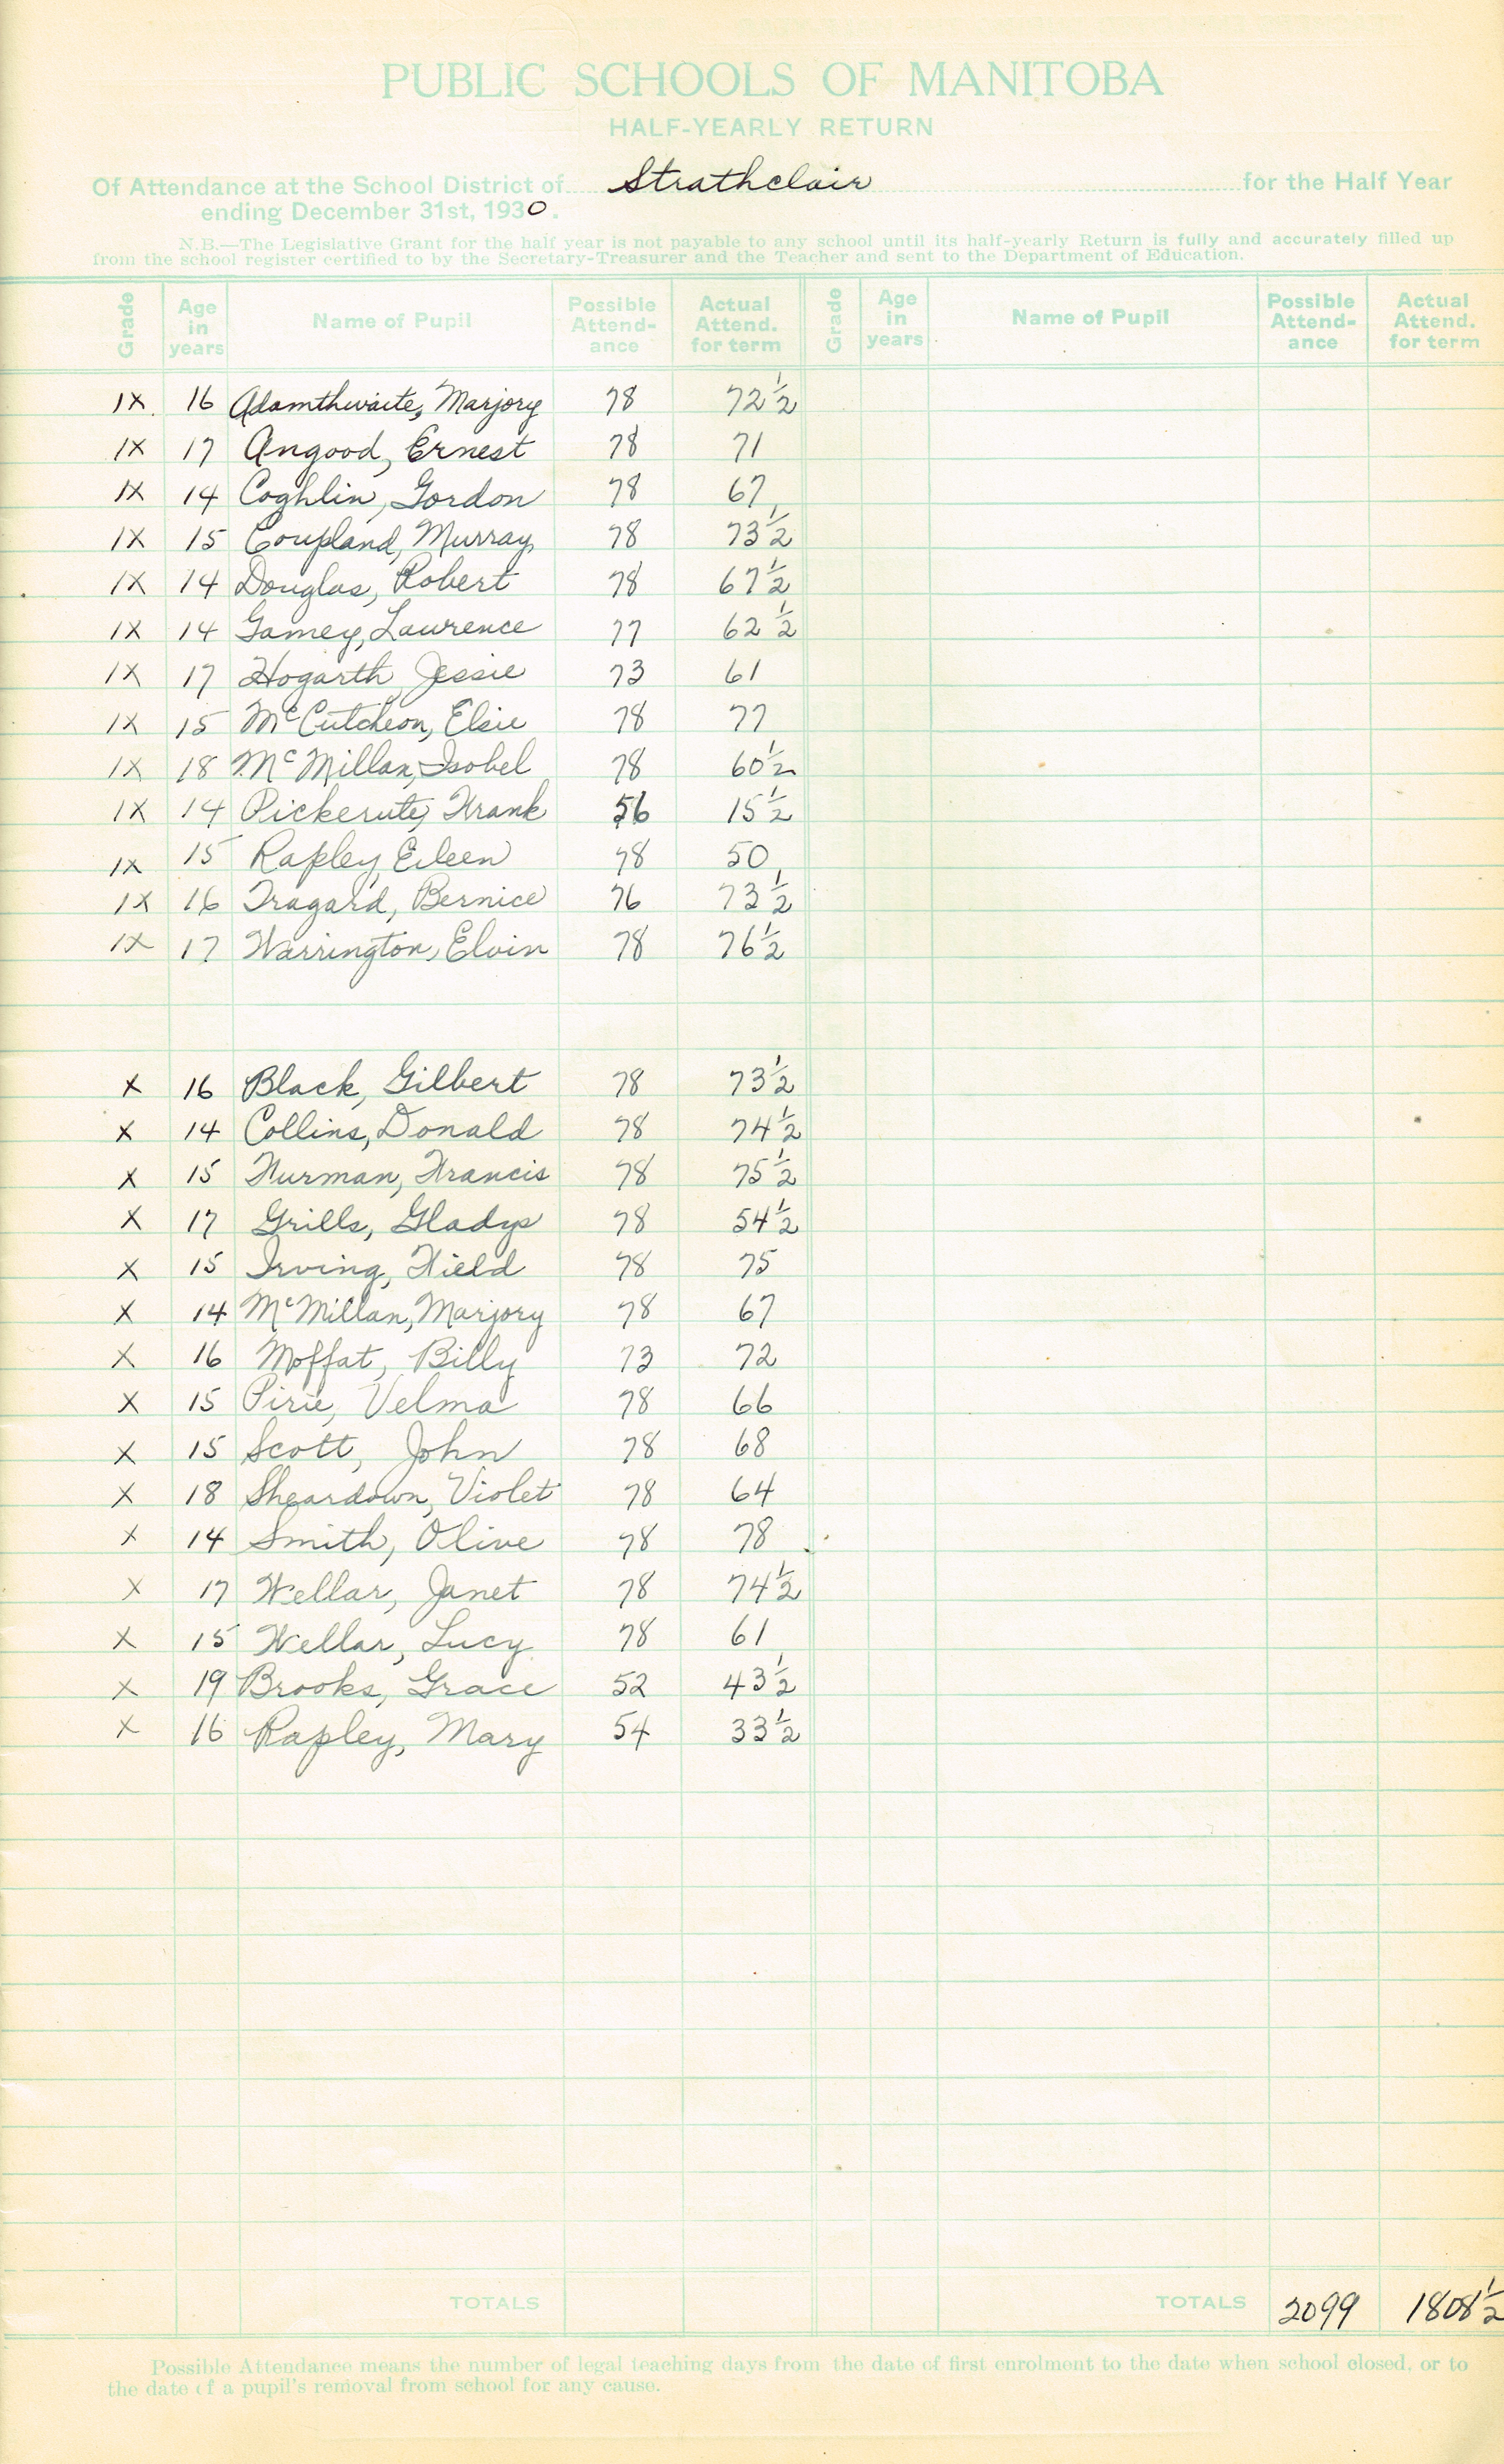 PUBLIC SCHOOLS OF MANITOBA
HALF-YEARLY RETURN
Of Attendance at the School District of Strathclair for the Half Year
ending December 31st, 1930.
N.B.—The Legislative Grant for the half year is not payable to any school until its half-yearly Return is fully and accurately filled up
from the school register certified to by the Secretary-Treasurer and the Teacher and sent to the Department of Education.
Grade Age in years Name of Pupil Possible Attend-ance Actual Attend. for term Grade Age in years Name of Pupil Possible Attend-ance Actual Attend. for term
IX. 16 Adamthwaite, Marjory 78 72½
IX 17 Angood, Ernest 78 71
IX 14 Coghlin, Gordon 78 67
IX 15 Coupland, Murray 78 73½
IX 14 Douglas, Robert 78 67½
IX 14 Gamey, Laurence 77 62½
IX 17 Hogarth, Jessie 73 61
IX 15 McCutcheon, Elsie 78 77
IX 18 McMillan, Isobel 78 60½
IX 14 Frank 56 15½
IX 15 Rapley, Eileen 78 50
IX 16 Tragard, Bernice 76 73½
IX 17 Warrington, Elvin 78 76½
X 16 Black, Gilbert 78 73½
X 14 Collins, Donald 78 74½
X 15 Furman, Francis 78 75½
X 17 Grills, Gladys 78 54½
X 15 Irving, Field 78 75
X 14 McMillan, Marjory 78 67
X 16 Moffat, Billy 73 72
X 15 Pirie, Velma 78 66
X 15 Scott, John 78 68
X 18 Sheardown, Violet 78 64
X 14 Smith, Olive 78 78
X 17 Wellar, Janet 78 74½
X 15 Wellar, Lucy 78 61
X 19 Brooks, Grace 52 43½
X 16 Rapley, Mary 54 33½
TOTALS TOTALS 2099 1808½
Possible Attendance means the number of legal teaching days from the date of first enrolment to the date when school closed, or to
the date of a pupil's removal from school for any cause.